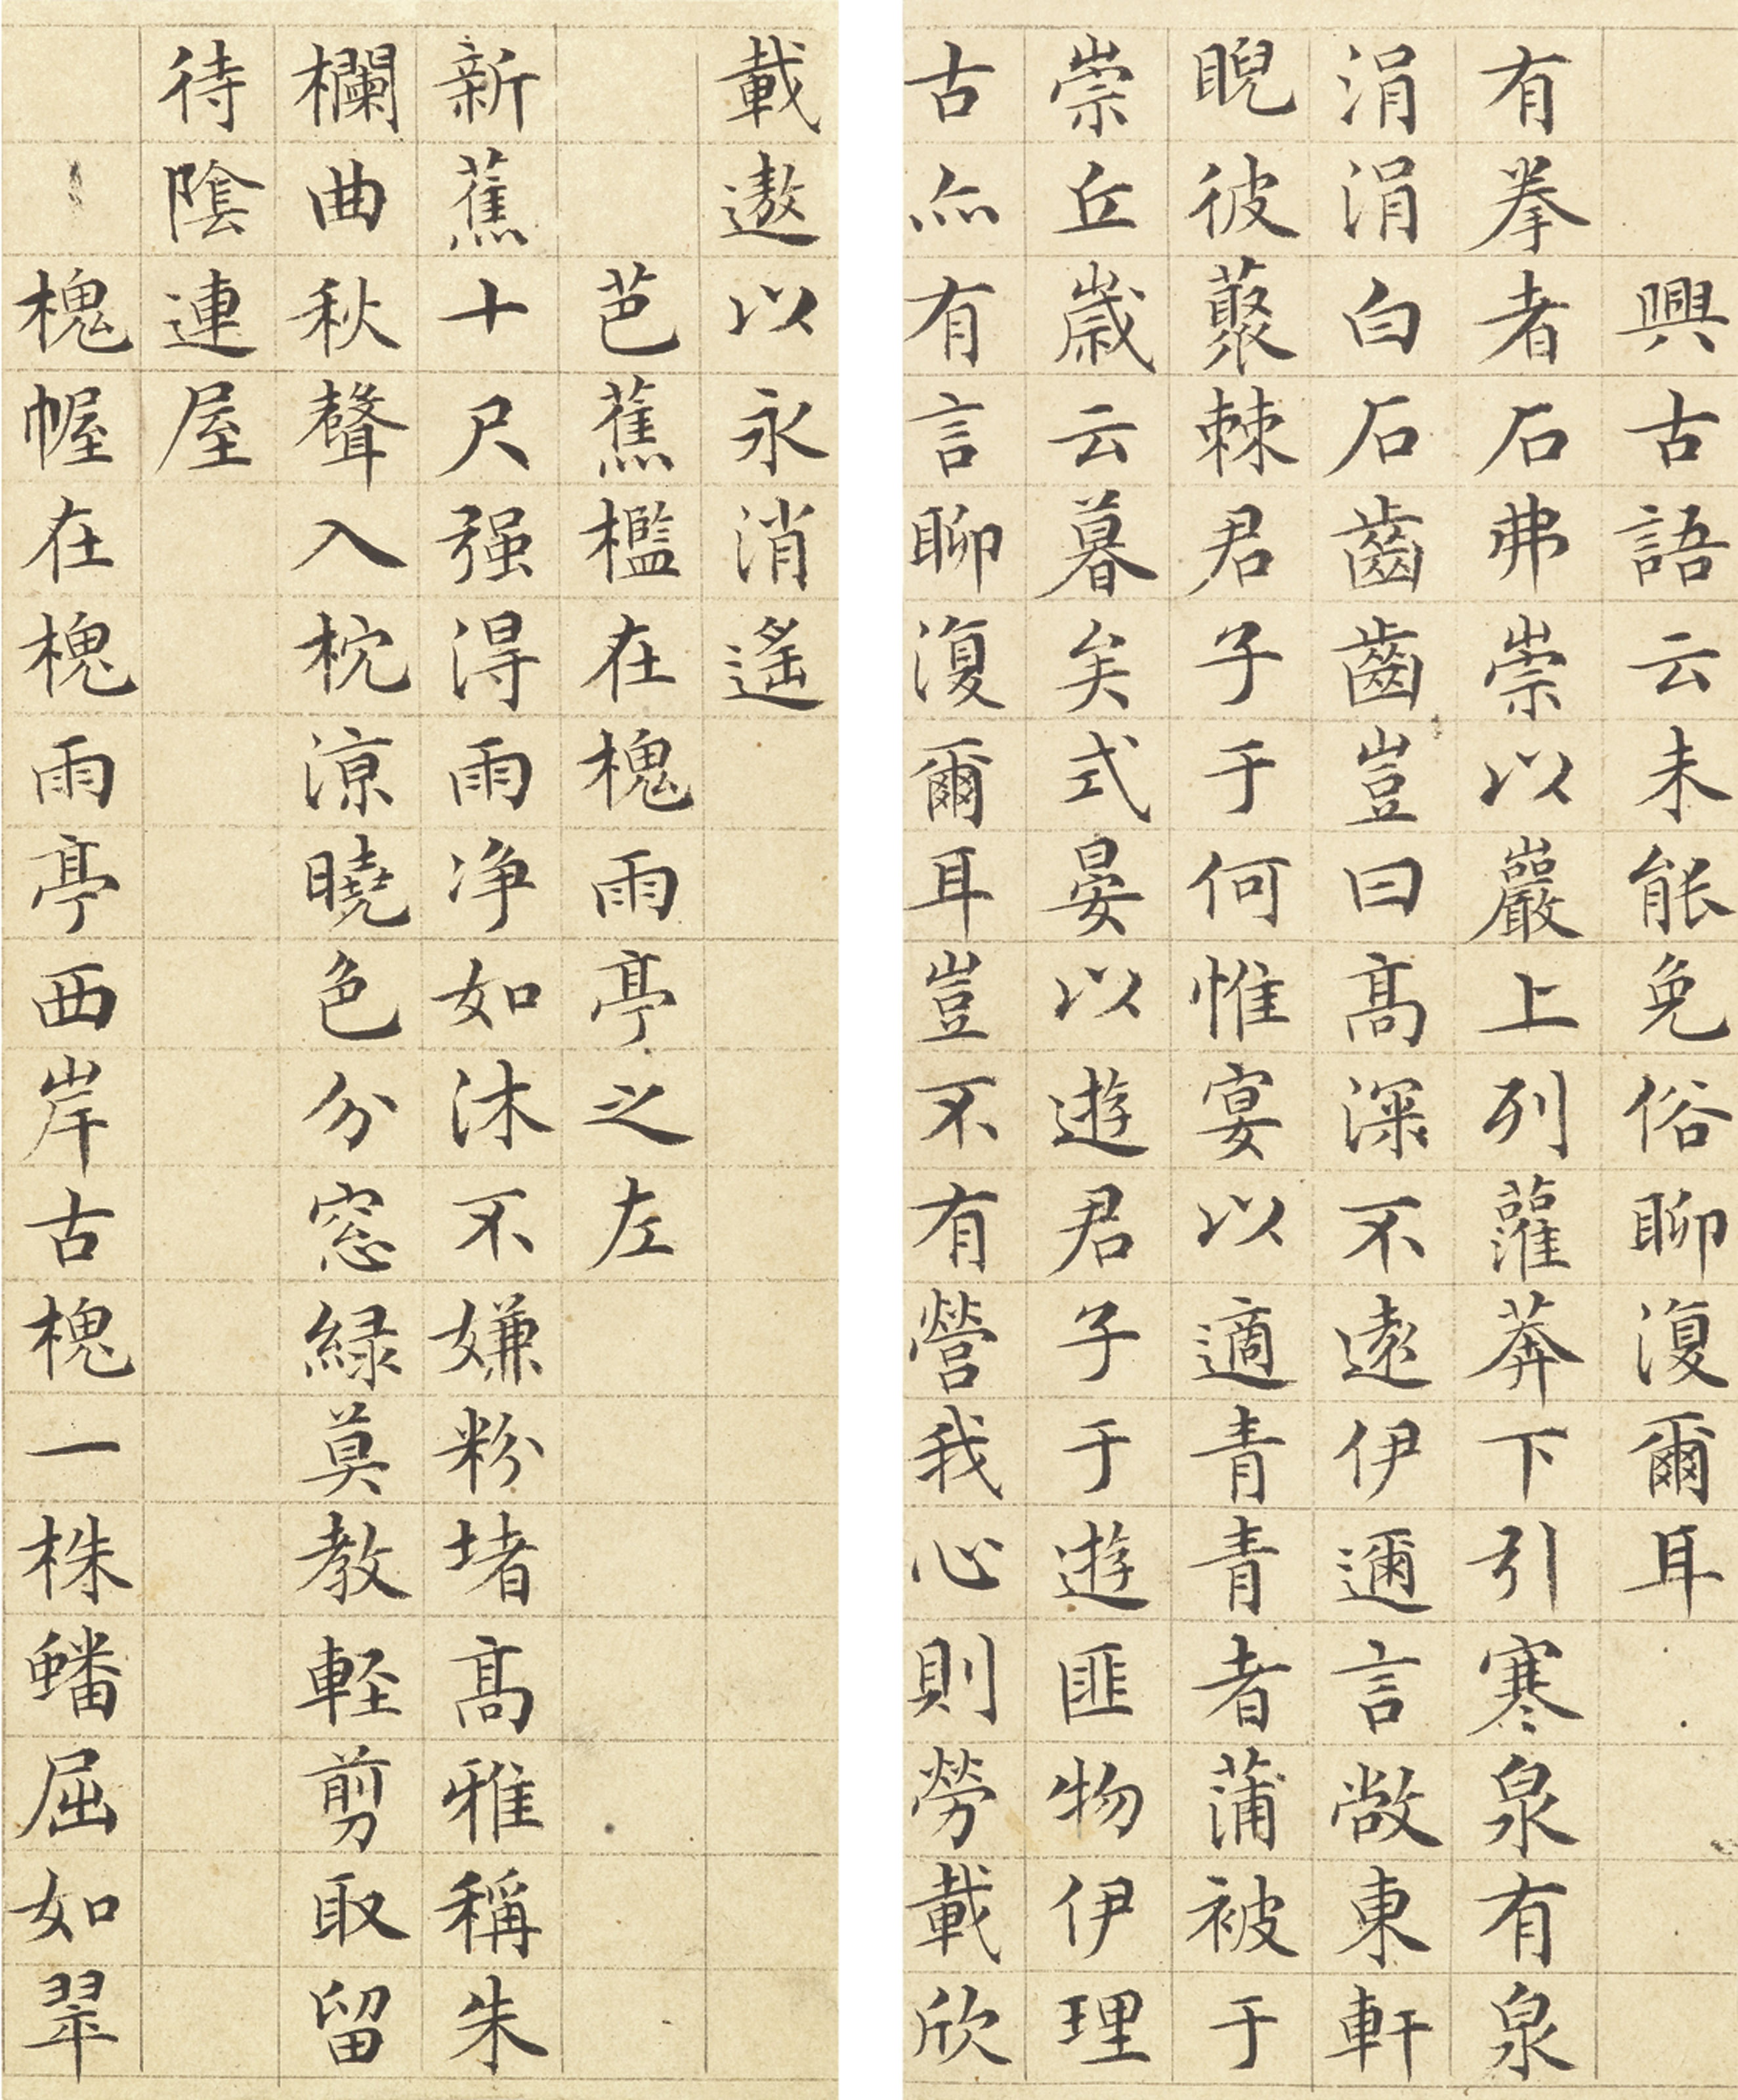 興古語云未能免俗聊復爾耳
有拳者石弗崇以巖上列灌莽下引寒泉有泉
涓涓白石齒齒豈曰高深不遠伊邇言敞東軒
睨彼藂棘君子于何惟宴以適青青者蒲被于
崇丘歲云暮矣式晏以遊君子于遊匪物伊理
古亦有言聊復爾耳豈不有營我心則勞載欣
載遨以永消遙
芭蕉檻在槐雨亭之左
新蕉十尺强得雨净如沐不嫌粉堵高雅稱朱
欄曲秋聲入枕凉曉色分窓緑莫教軽剪取留
待陰連屋
槐幄在槐雨亭西岸古槐一株蟠屈如翠